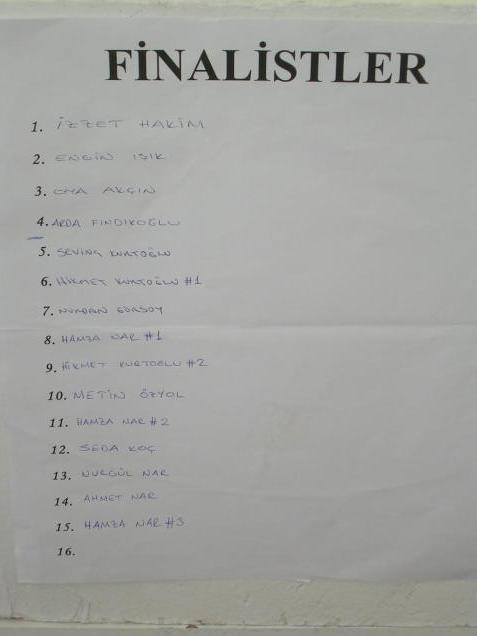 FİNALİSTLER
1. İZZET HAKİM
2. ENGİN IŞIK
3. OYA AKÇIN
4. ARDA FINDIKOĞLU
5. SEVİNÇ KURTOĞLU
6. HİKMET KURTOĞLU #1
7. NURDAN GÜRSOY
8. HAMZA NAR #1
9. HİKMET KURTOĞLU #2
10. METİN ÖZYOL
11. HAMZA NAR #2
12. SEDA KOÇ
13. NURGÜL NAR
14. AHMET NAR
15. HAMZA NAR #3
16.